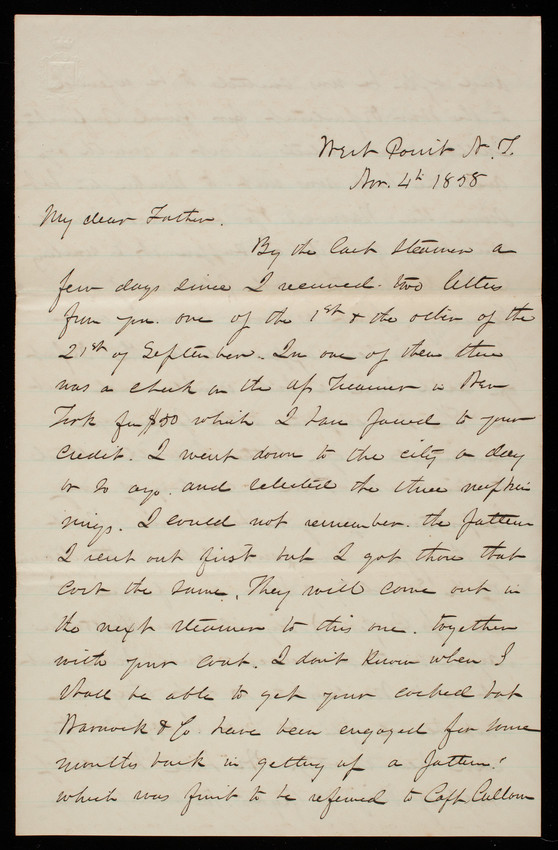 West Point N.Y.
Nov. 4th 1858
My dear Father.
By the last steamer a
few days since I received two letters
from you. one of the 1st & the other of the
21st of September. In one of them there
was a check on the ass Treasurer in New
York for $50 which I have passed to your
credit. I went down to the city a day
or so ago. and selected the three napkin
rings. I could not remember the pattern
I sent out first but I got those that
cost the same. They will come out in
the next steamer to this one. together
with your coat. I don't know when I
shall be able to get your cocked hat
Warnock & Co. have been engaged for some
months back in getting up a pattern
which was first to be referred to Capt. Cullum